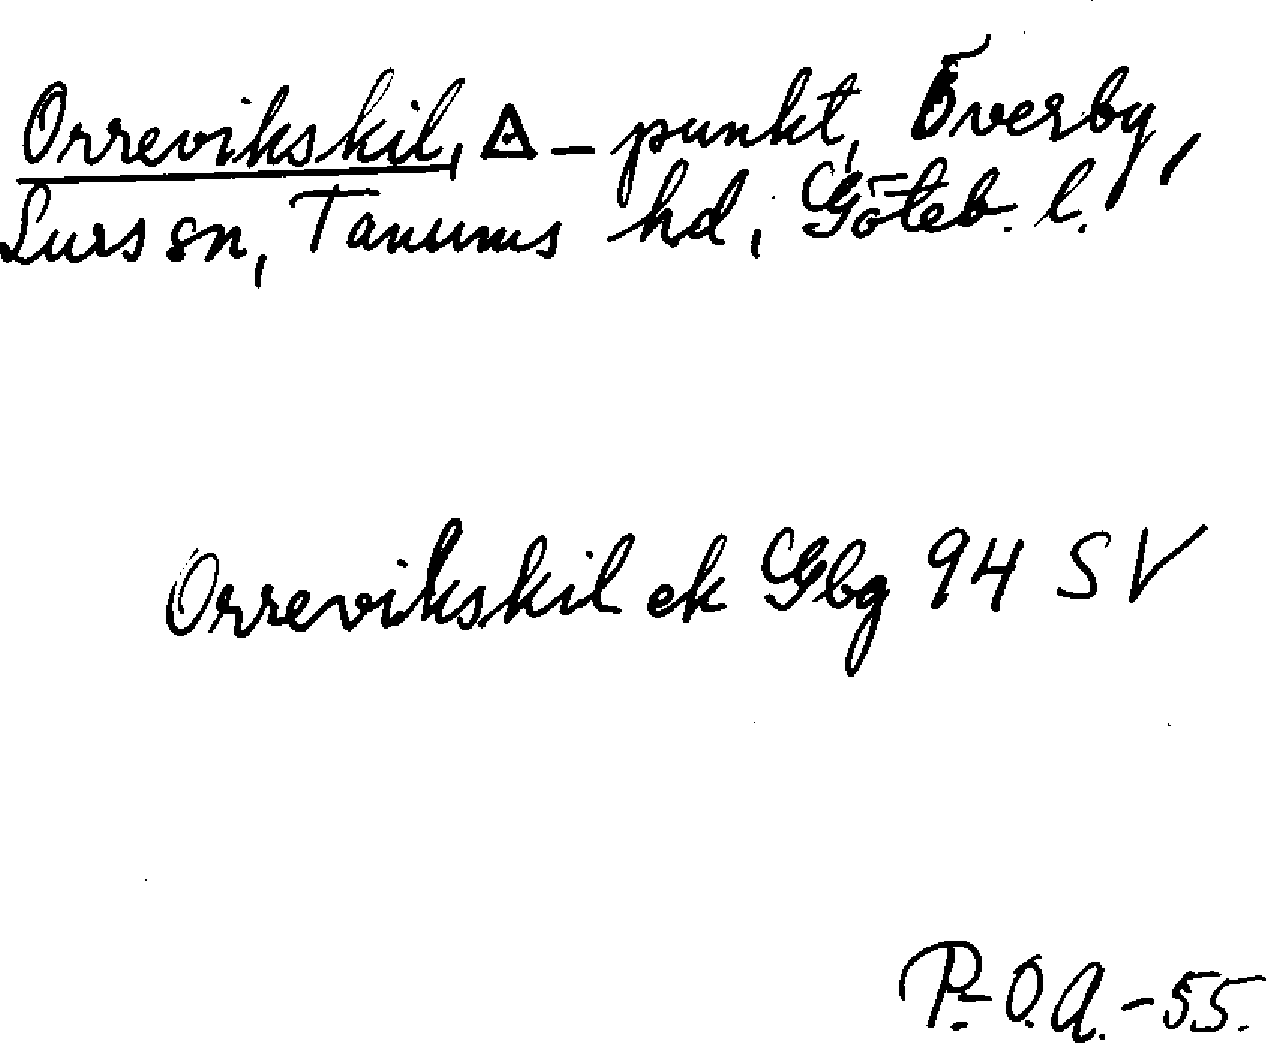 Orrevikskil, △-punkt, Överby,
Lurs sn, Tanums hd, Göteb. l.
Orrevikskil ek Gbg 94 SV
P.-O.A.-55.